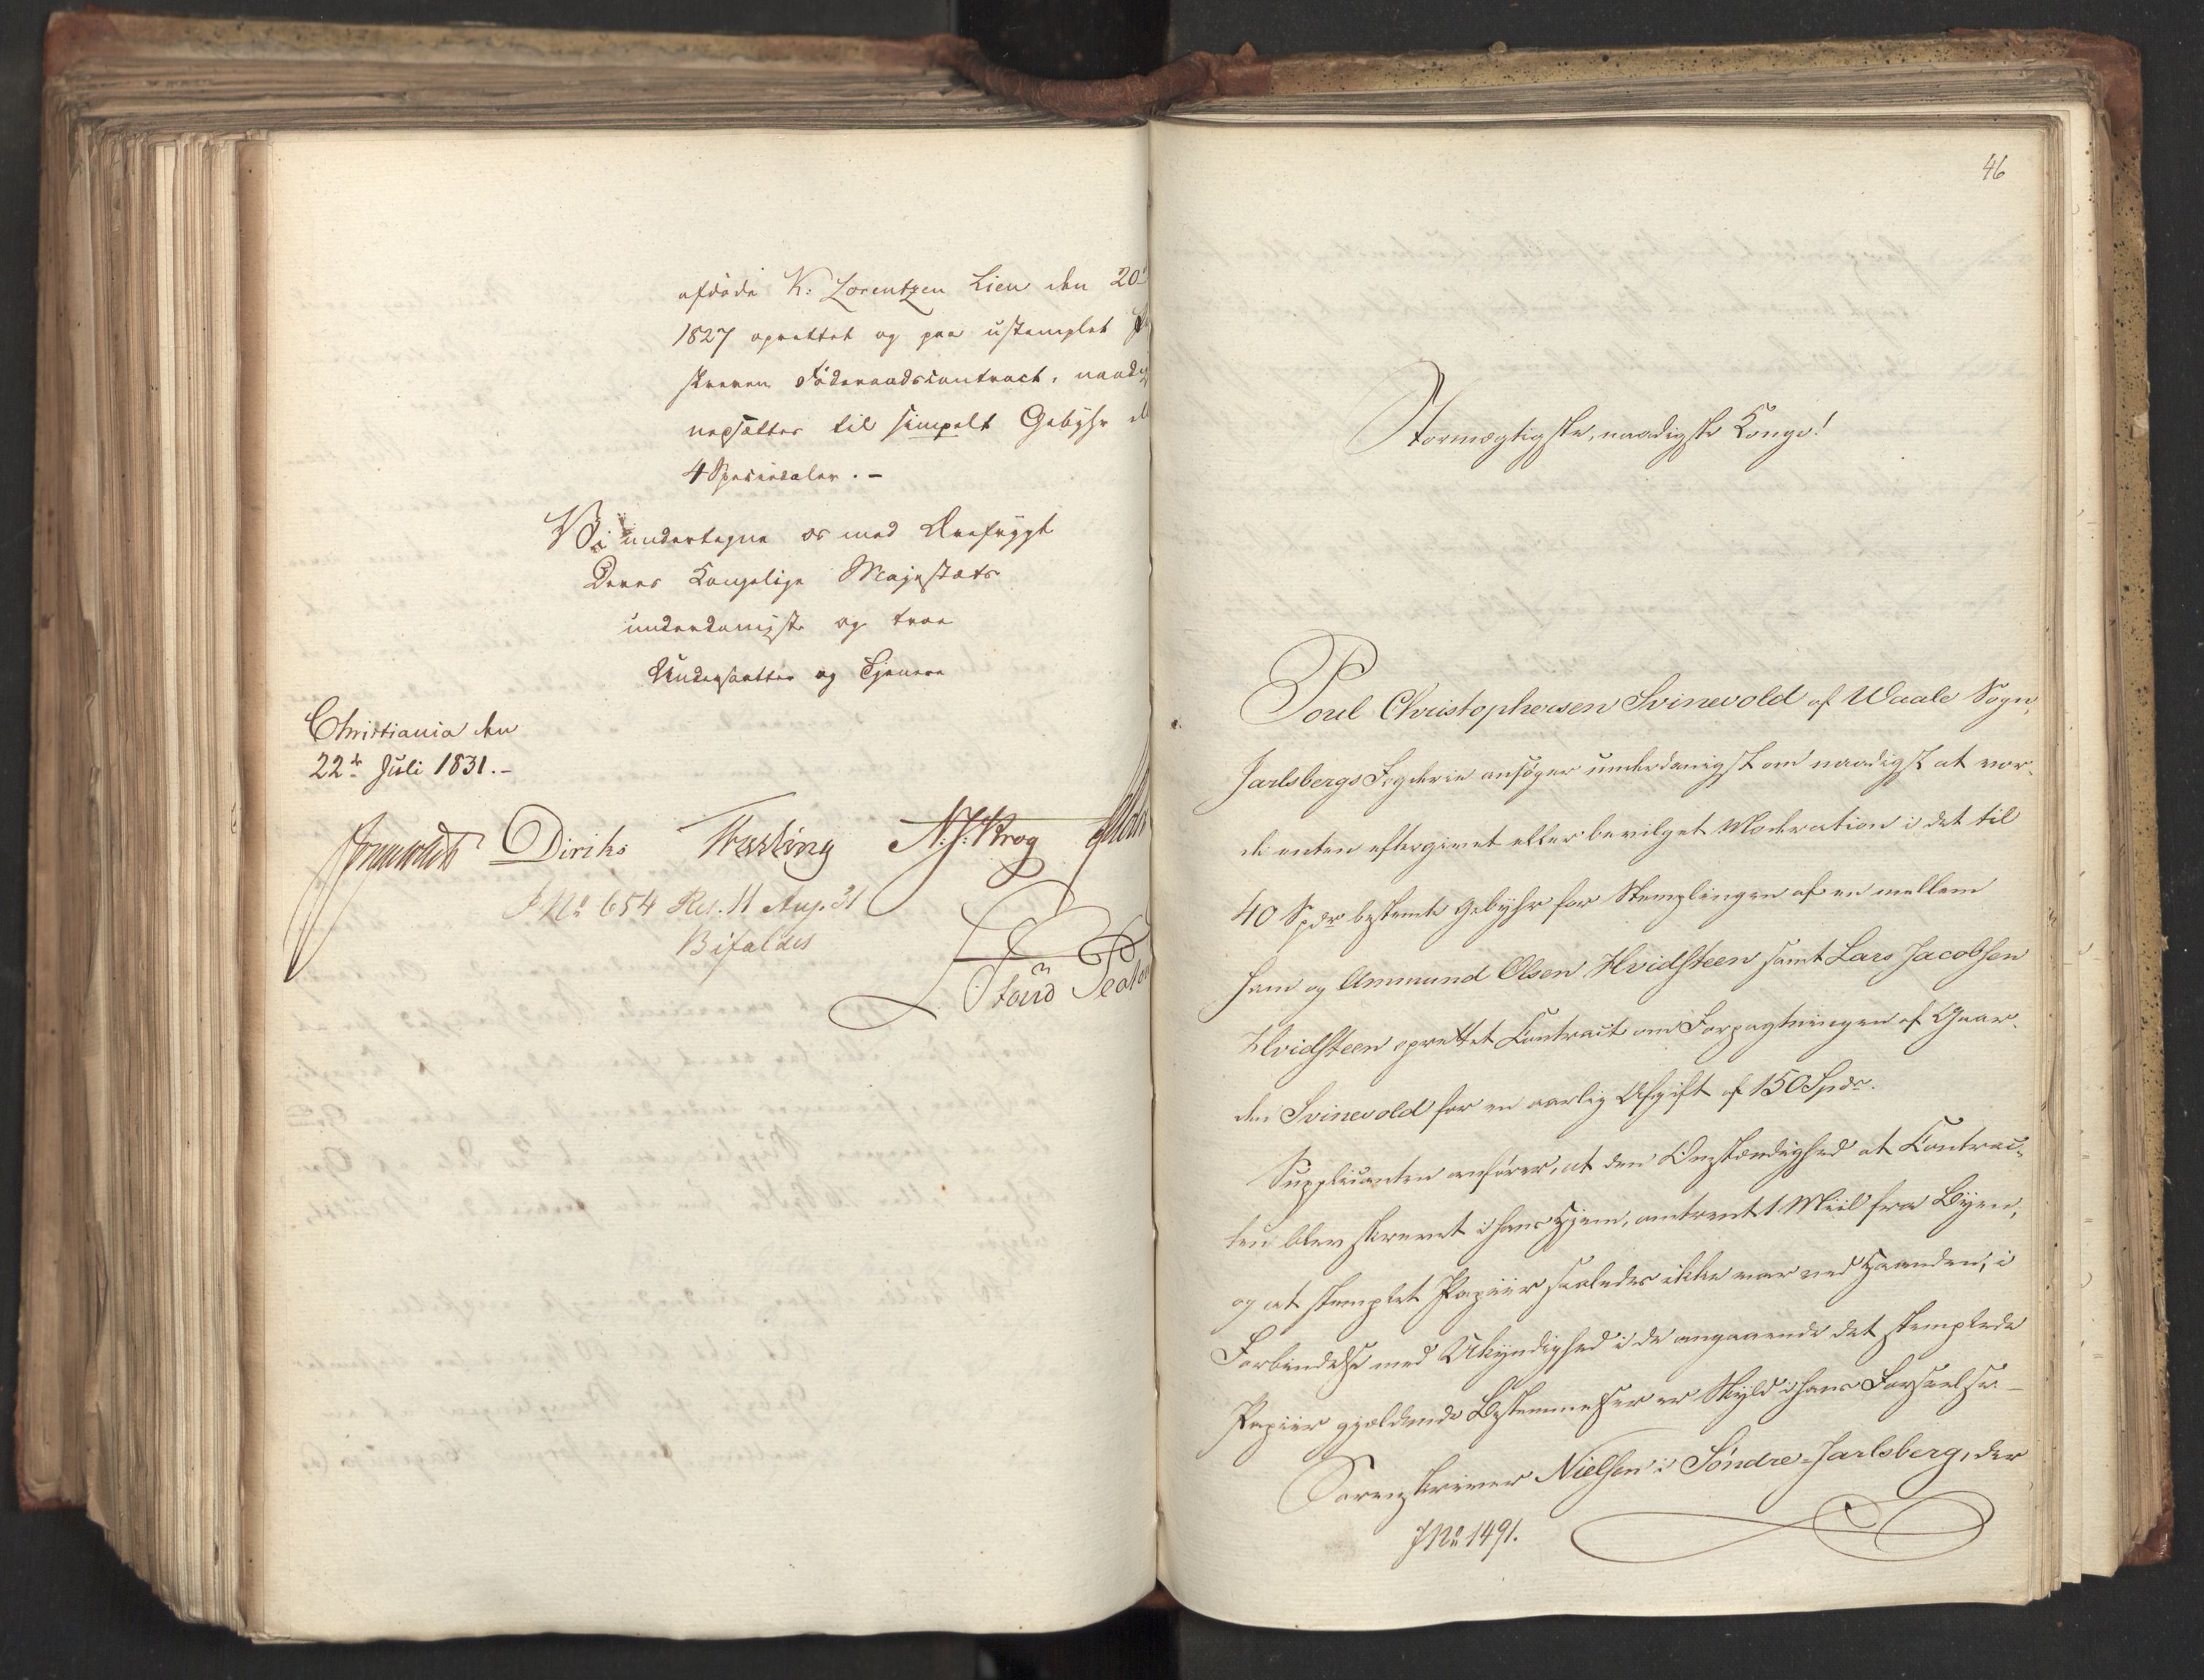 afdöde K: Lorentzen Lien den 20
1827 oprettet og paa ustemplet
skreven Föderaadscontract, naadigst
nedsættes til simpelt Gebyhr
4 Speciedaler. -
Vi undertegne os med Ærefrygt
Deres Kongelige Majestæts
underdanigste og troe
Undersaatter og Tjenere
Christiania den
22de Juli 1831.-
Diriks Fasting N. J. Krog
J No 654 Res. 11 Aug. 31
Bifaldes
46
Stormægtigste, naadigste Konge!
Poul Christophersen Svinevold af Waale Sogn,
Jarlsbergs Fogderie ansøger underdanigst om naadigst at vor-
de enten eftergivet eller bevilget Moderation i det til
40 Spdr bestemte Gebyhr for Stemplingen af en mellem
ham og Ammund Olsen Hvidsteen samt Lars Jacobsen
Hvidsteen oprettet Contract om Forpagtningen af Gaar-
den Svinevold for en aarlig Afgift af 150 Spdr.
Supplicanten anfører, at den Omstændighed at Contrac-
ten blev skrevet i hans Hjem, omtrent 1 Miil fra Byen,
og at stemplet Papiir saaledes ikke var ved Haanden, i
Forbindelse med Ukyndighed i de angaaende det stemplede
Papiir gjældende Bestemmelser er Skyld i hans Forseelse. -
Sorenskriver Nielsen i Søndre-Jarlsberg, der
J No 1491.